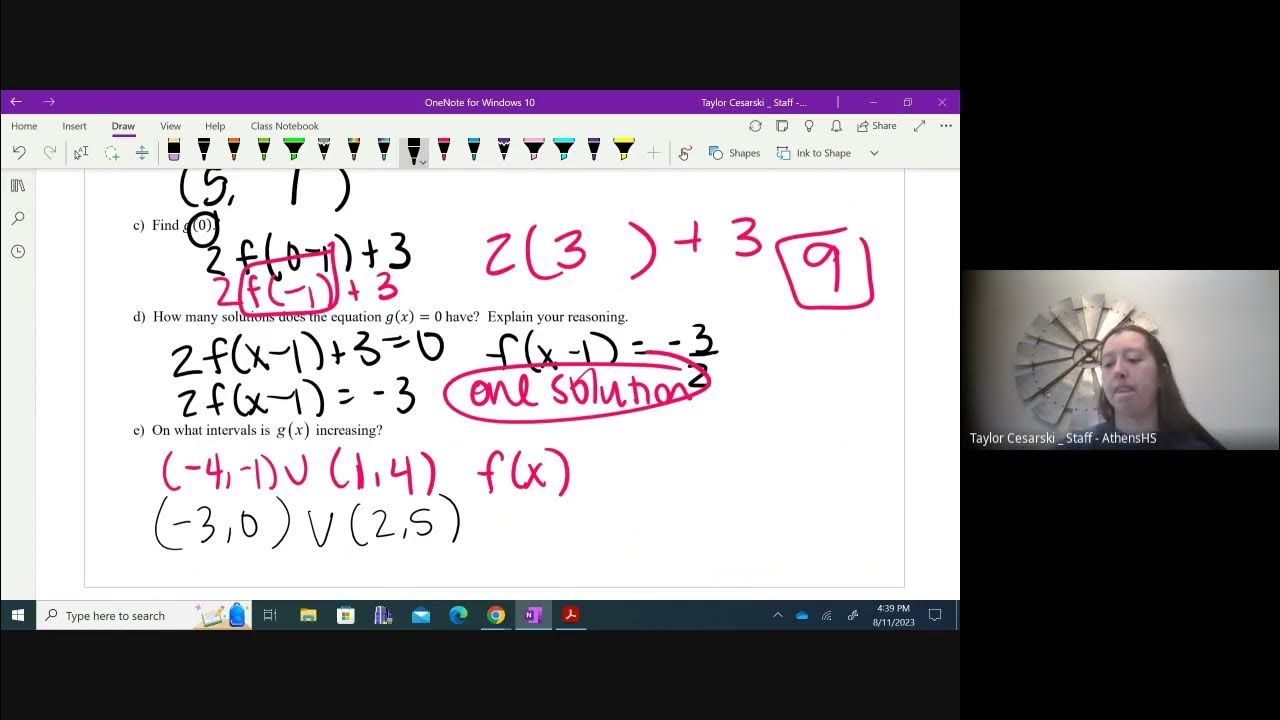 OneNote for Windows 10
Taylor Cesarski _ Staff -...
Home Insert Draw View Help Class Notebook
Share
Shapes
Ink to Shape
(5, 1 )
c) Find g(0).
2f(0-1)+3
2(3 ) + 3
9
2f(-1) + 3
d) How many solutions does the equation g(x) = 0 have? Explain your reasoning.
2f(x-1)+3=0
f(x-1) = -3/2
2f(x-1) = -3
one solution
e) On what intervals is g(x) increasing?
(-4,-1)∪(1,4) f(x)
(-3,0) ∪ (2,5)
Taylor Cesarski _ Staff - AthensHS
Type here to search
4:39 PM
8/11/2023